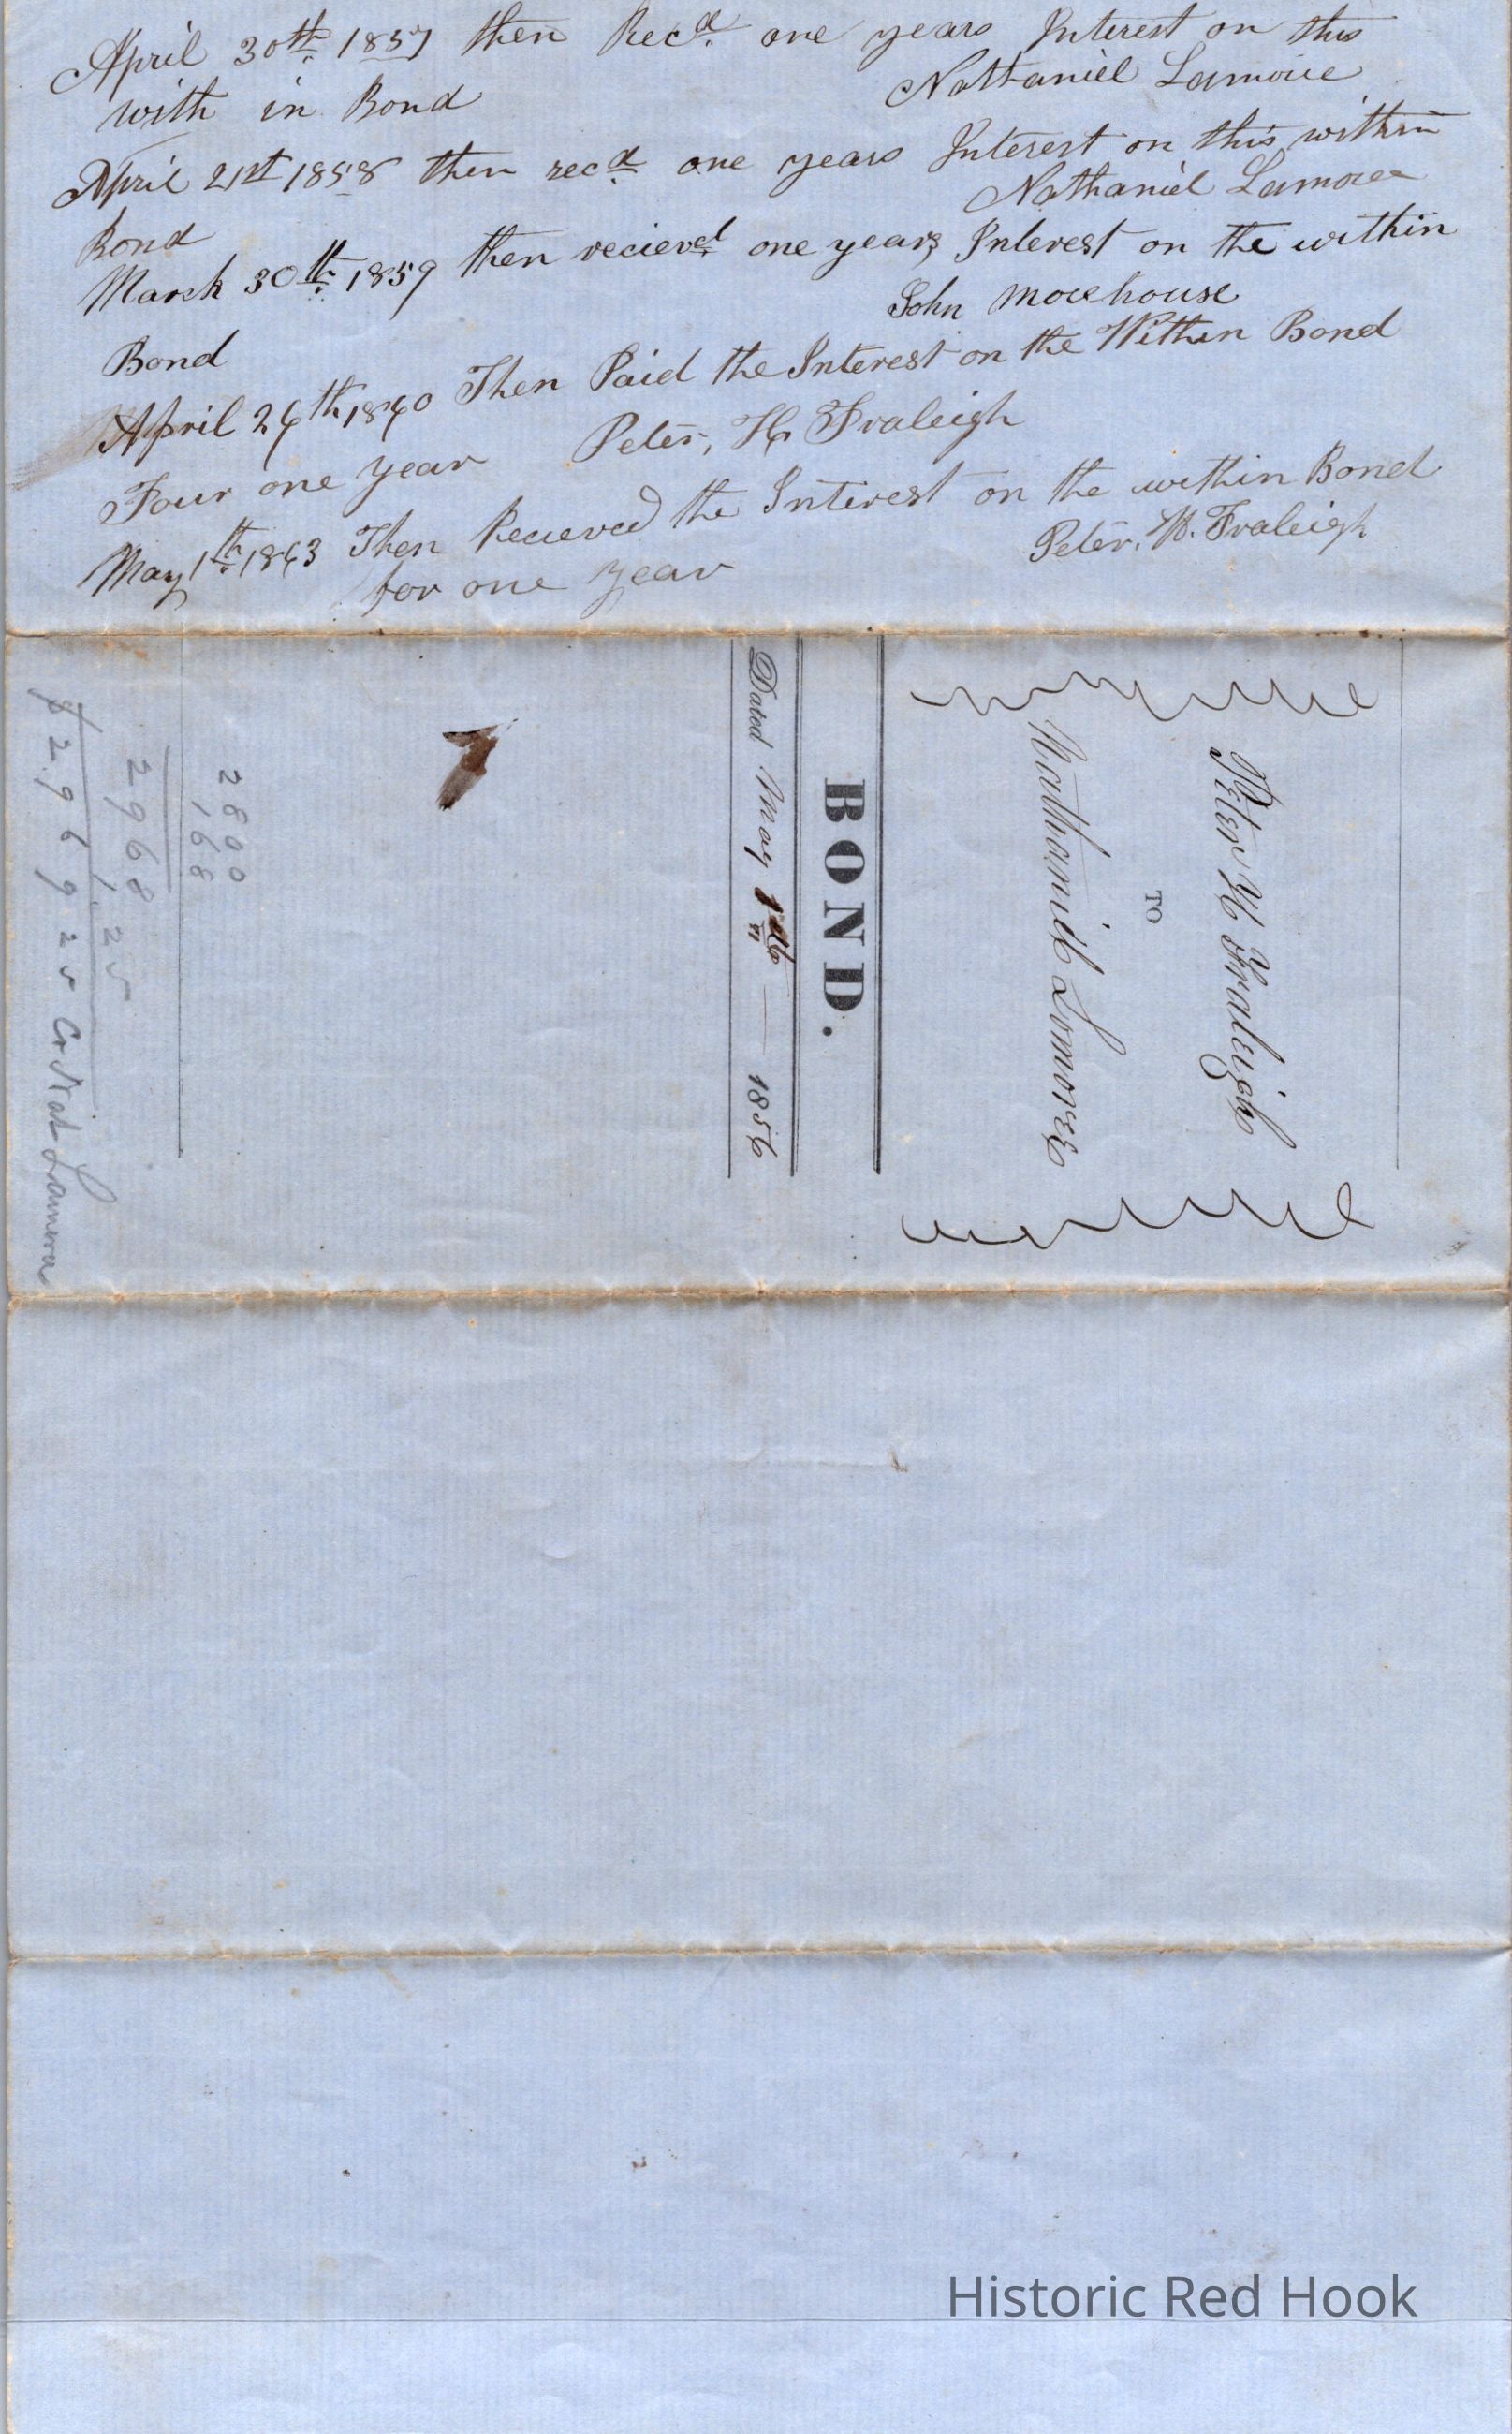 April 30th 1857 then Recd. one years Interest on this
with in Bond
Nathaniel Lamoree
April 21st 1858 then recd. one years Interest on this within
Bond
Nathaniel Lamoree
March 30th 1859 then recieved one years Interest on the within
Bond
John Morehouse
April 26th 1860 Then Paid the Interest on the Within Bond
Four one year Peter, H. Fraleigh
May 1th 1863 Then Recieved the Interest on the within Bond
for one year
Peter. H. Fraleigh
Peter H Fraleigh
TO
Nathaniel Lamoree
BOND.
Dated May 1th 1856
2800
168
2968
1.25
$2969 25 Cr Nat Lamoree
Historic Red Hook